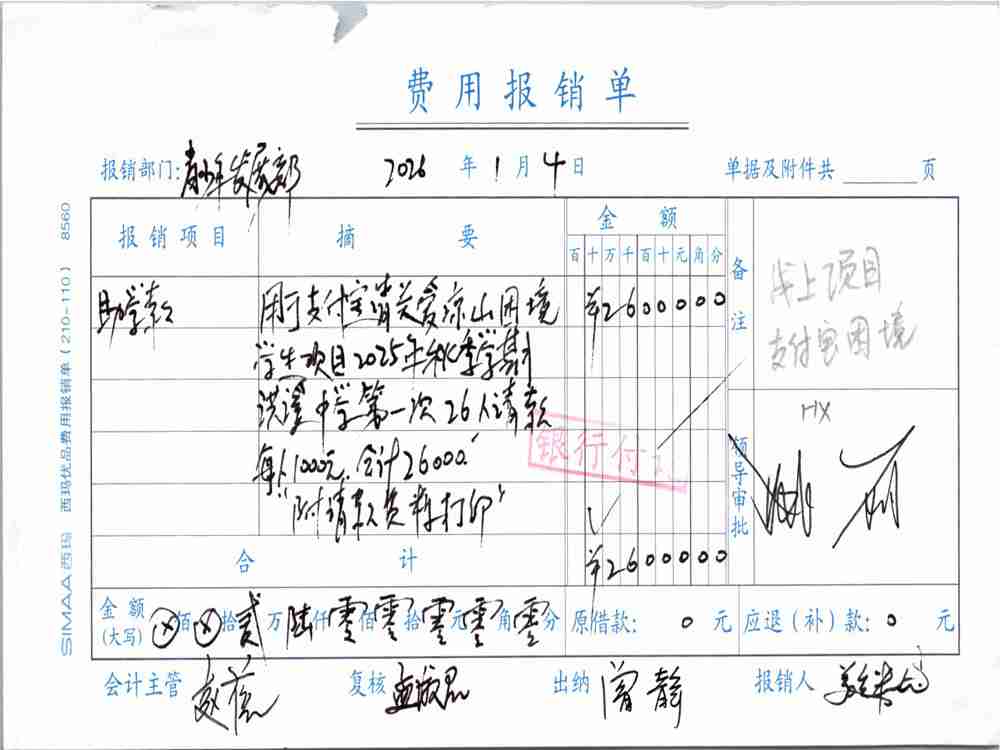 费用报销单
报销部门: 青少年发展部 2026 年 1 月 4 日 单据及附件共 页
SIMAA 西玛 西玛优品费用报销单(210-110) 8560
报销项目 摘要 金额 备注
百十万千百十元角分
助学款 用于支付宝消关爱凉山困境 ¥2600000
学生项目2025年秋季学期
洪溪中学第一次26人请款
每人1000元,合计26000.
"附请款资料打印"
线上项目
支付宝困境
HX
银行付
领导审批
合计 ¥2600000
金额(大写) ⊗佰⊗拾贰万陆仟零佰零拾零元零角零分 原借款: 0 元 应退(补)款: 0 元
会计主管 复核 出纳 曾静 报销人